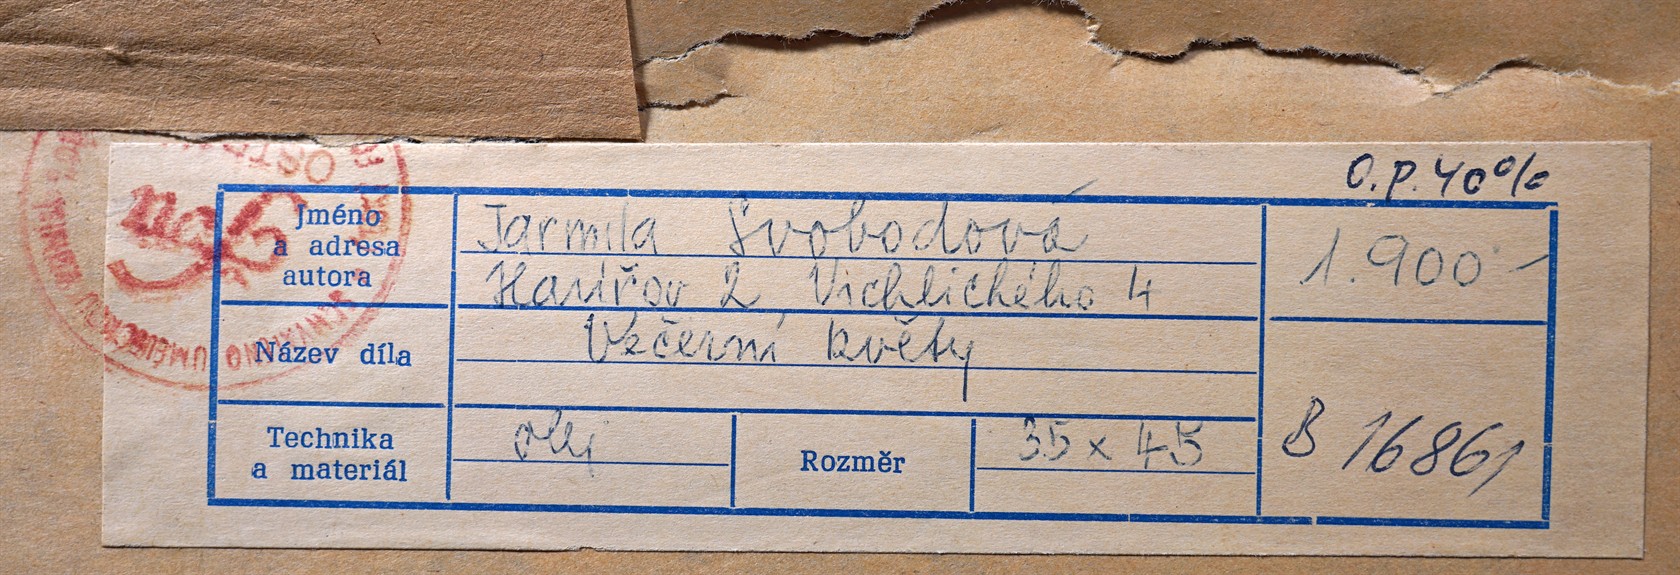 O.P. 40%
Jméno
a adresa
autora
Jarmila Svobodová
Havířov 2, Vichlického 4
1.900-
Název díla
Večerní květy
Technika
a materiál
olej
Rozměr
35 x 45
B 16861